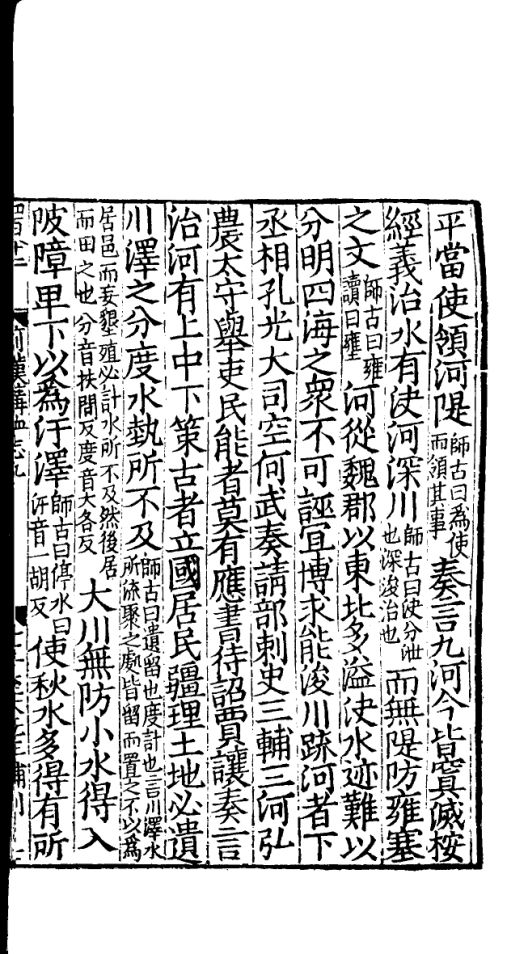 平當使領河隄師古曰爲使而領其事奏言九河今皆窴滅桉
經義治水有決河深川師古曰決分泄也深浚治也而無隄防雍塞
之文師古曰雍讀曰壅河從魏郡以東北多溢決水迹難以
分明四海之衆不可誣宜博求能浚川疏河者下
丞相孔光大司空何武奏請部刺史三輔三河弘
農太守舉吏民能者莫有應書待詔賈讓奏言
治河有上中下策古者立國居民疆理土地必遺
川澤之分度水埶所不及師古曰遺留也度計也言川澤水所流聚之處皆留而置之不以爲
居邑而妄墾殖必計水所不及然後居而田之也分音扶問反度音大各反大川無防小水得入
陂障卑下以爲汙澤師古曰停水曰汙音一胡反使秋水多得有所
前漢溝洫志九